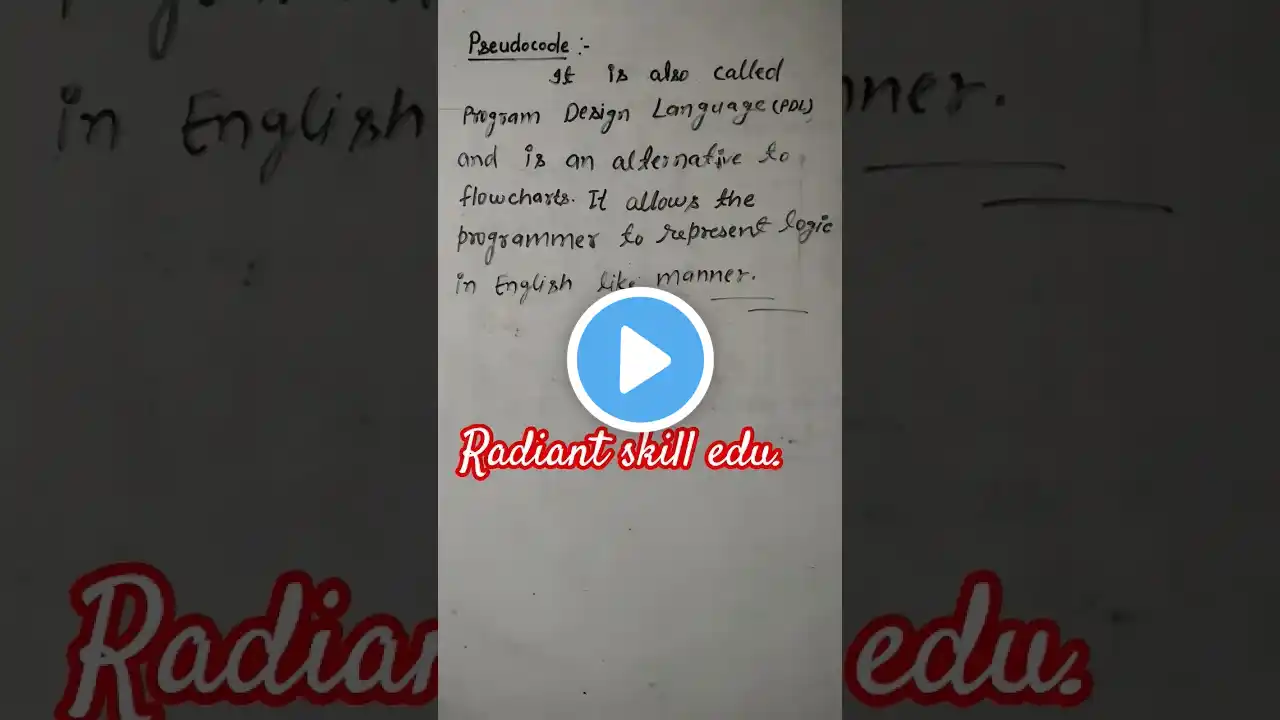 Pseudocode :-
It is also called
Program Design Language (PDL)
and is an alternative to
flowcharts. It allows the
programmer to represent logic
in English like manner.
Radiant skill edu.
in English
nner.
Radian
edu.